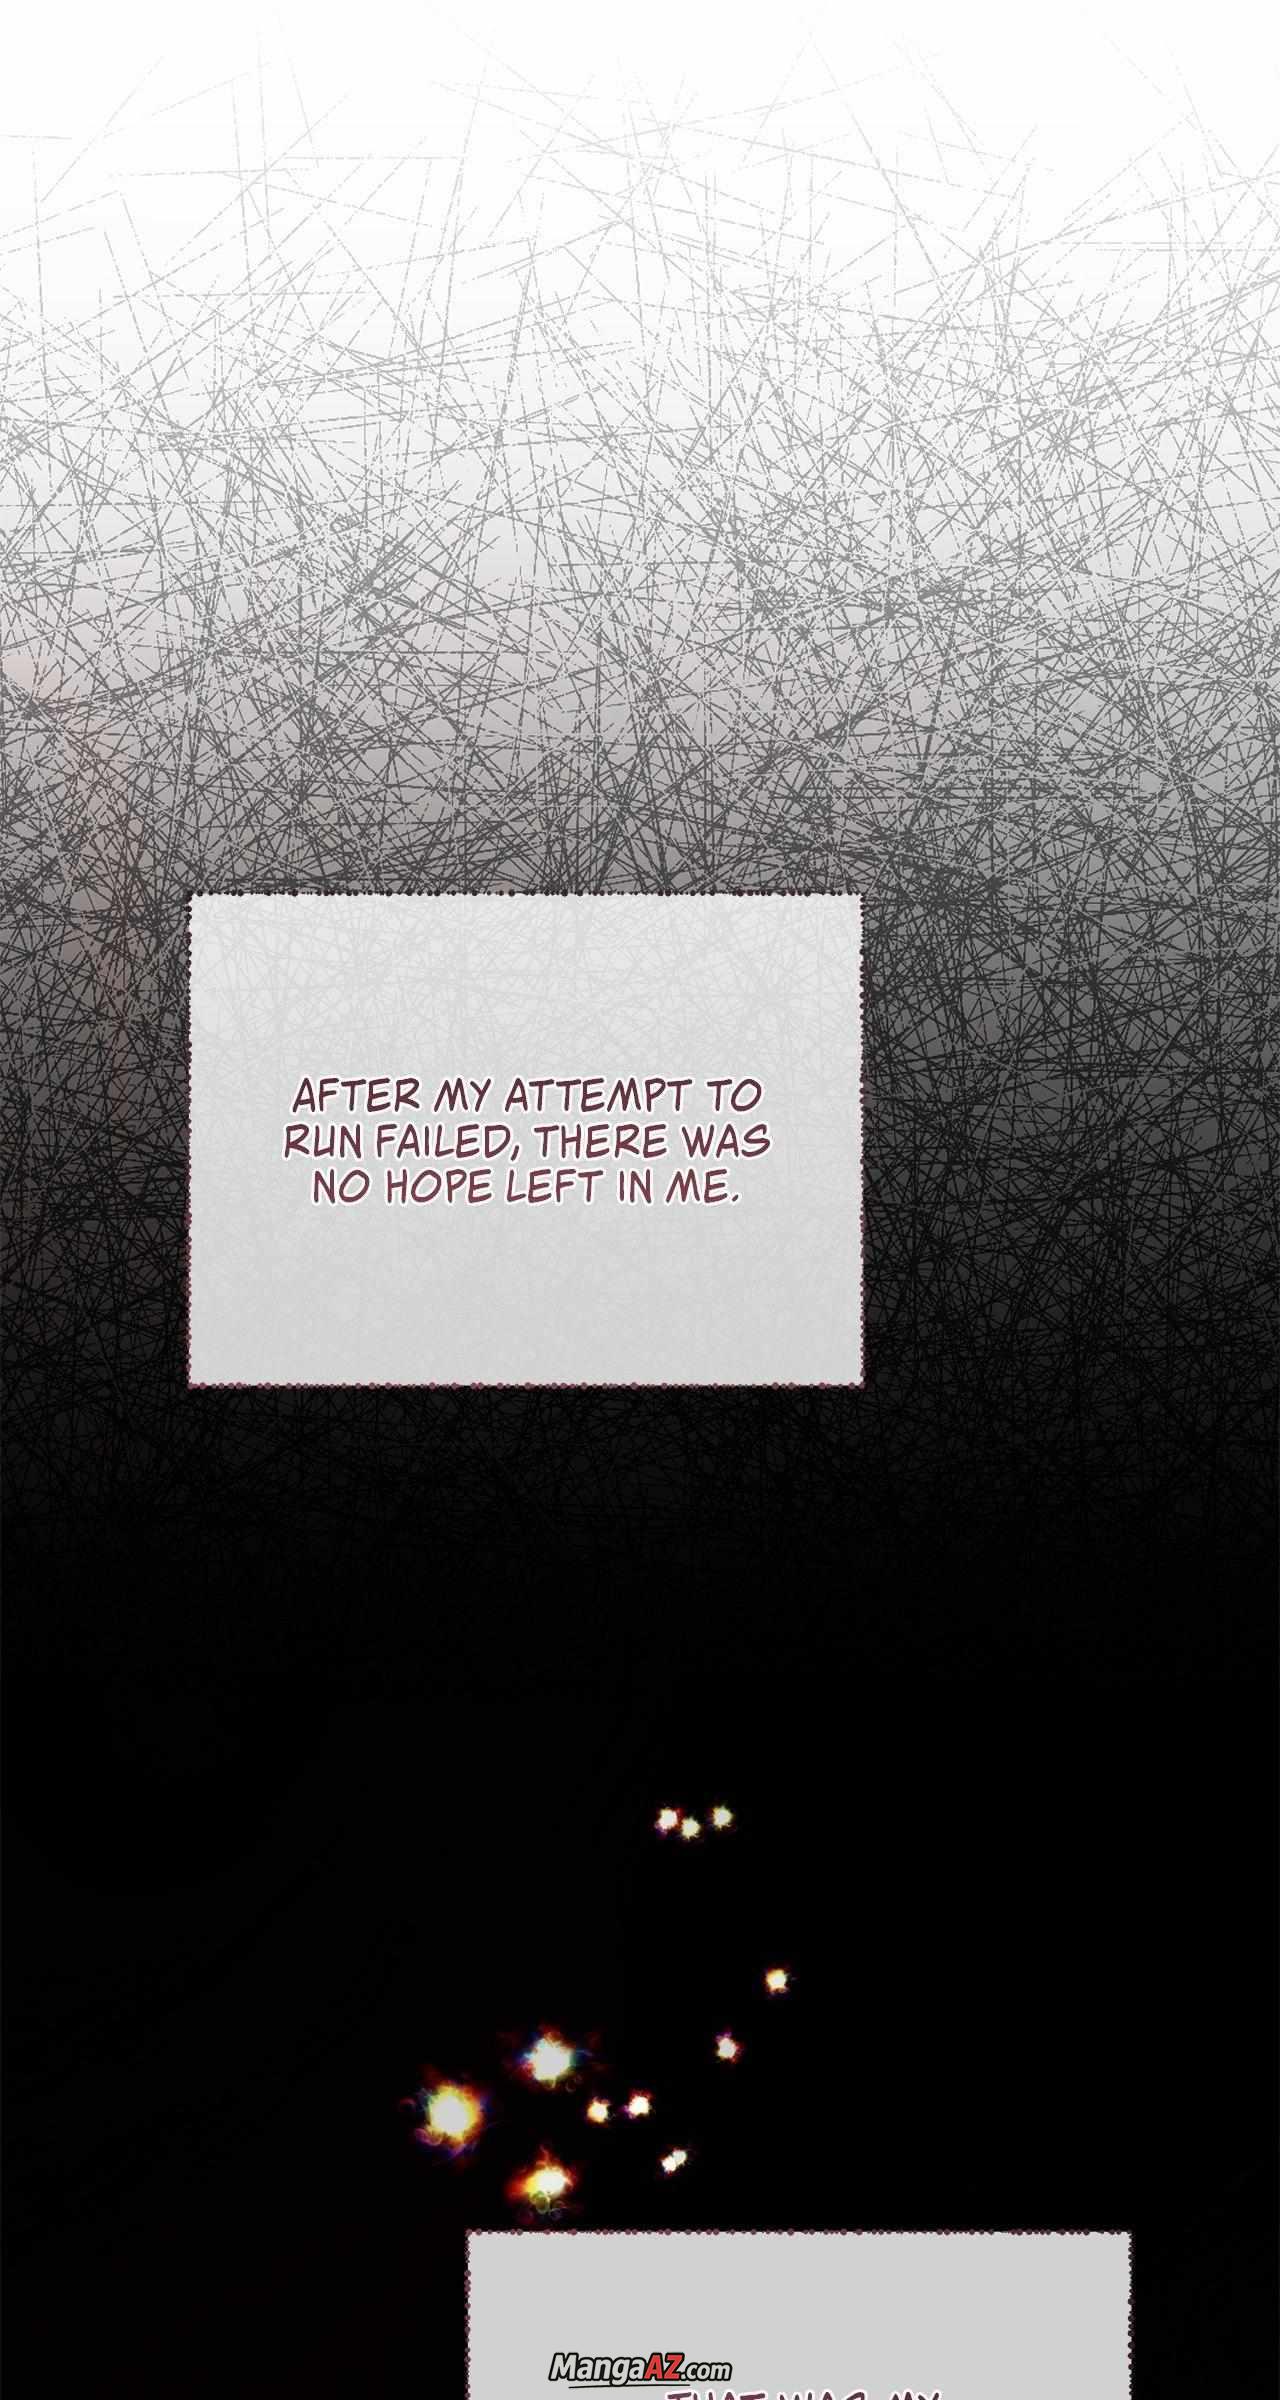 AFTER MY ATTEMPT TO
RUN FAILED, THERE WAS
NO HOPE LEFT IN ME.
MangaAZ.com
THAT WAS MY